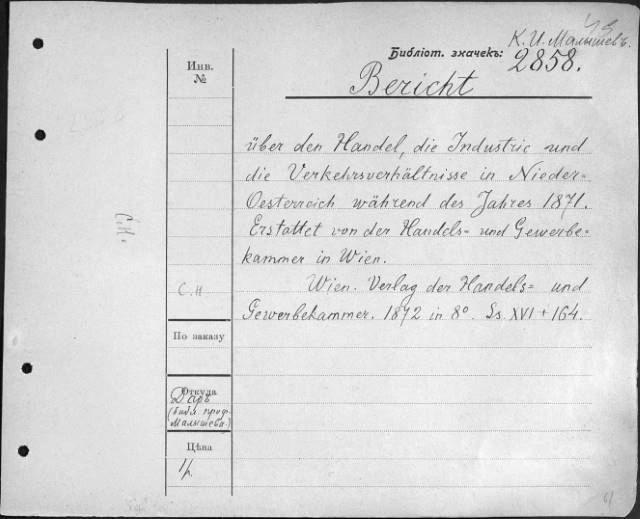 К. И. Малышевъ.
Библіот. значекъ: 2858.
Инв.
№
Bericht
über den Handel, die Industrie und
die Verkehrsverhältnisse in Nieder-
Oesterreich während des Jahres 1871.
Erstattet von der Handels- und Gewerbe-
kammer in Wien.
Wien. Verlag der Handels- und
Gewerbekammer. 1872 in 8°. Ss. XVI + 164.
С.Н.
С.Н
По заказу
Откуда
Даръ
(библ. проф.
Малышева.)
Цѣна
1р.